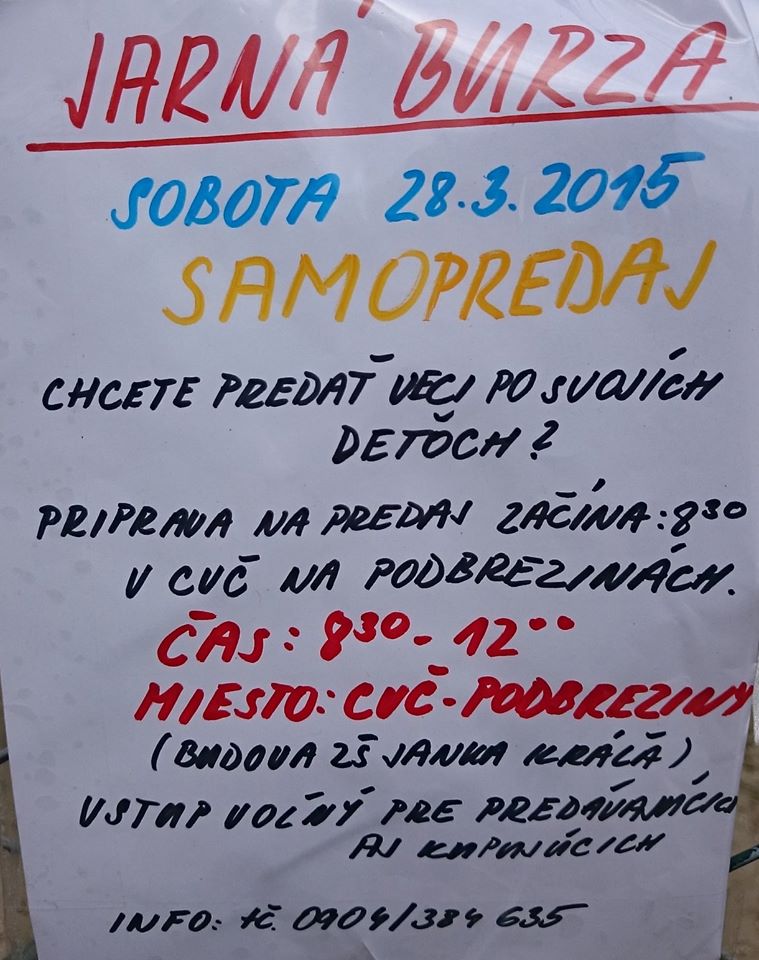 JARNÁ BURZA
SOBOTA 28.3.2015
SAMOPREDAJ
CHCETE PREDAŤ VECI PO SVOJÍCH
DEŤOCH?
PRIPRAVA NA PREDAJ ZAČÍNA: 8³⁰
V CVČ NA PODBREZINÁCH.
ČAS: 8³⁰ - 12⁰⁰
MIESTO: CVČ - PODBREZINY
(BUDOVA ZŠ JANKA KRÁĽA)
VSTUP VOĽNÝ PRE PREDÁVAJÚCICH
AJ KUPUJÚCICH
INFO: tč. 0904/384 635